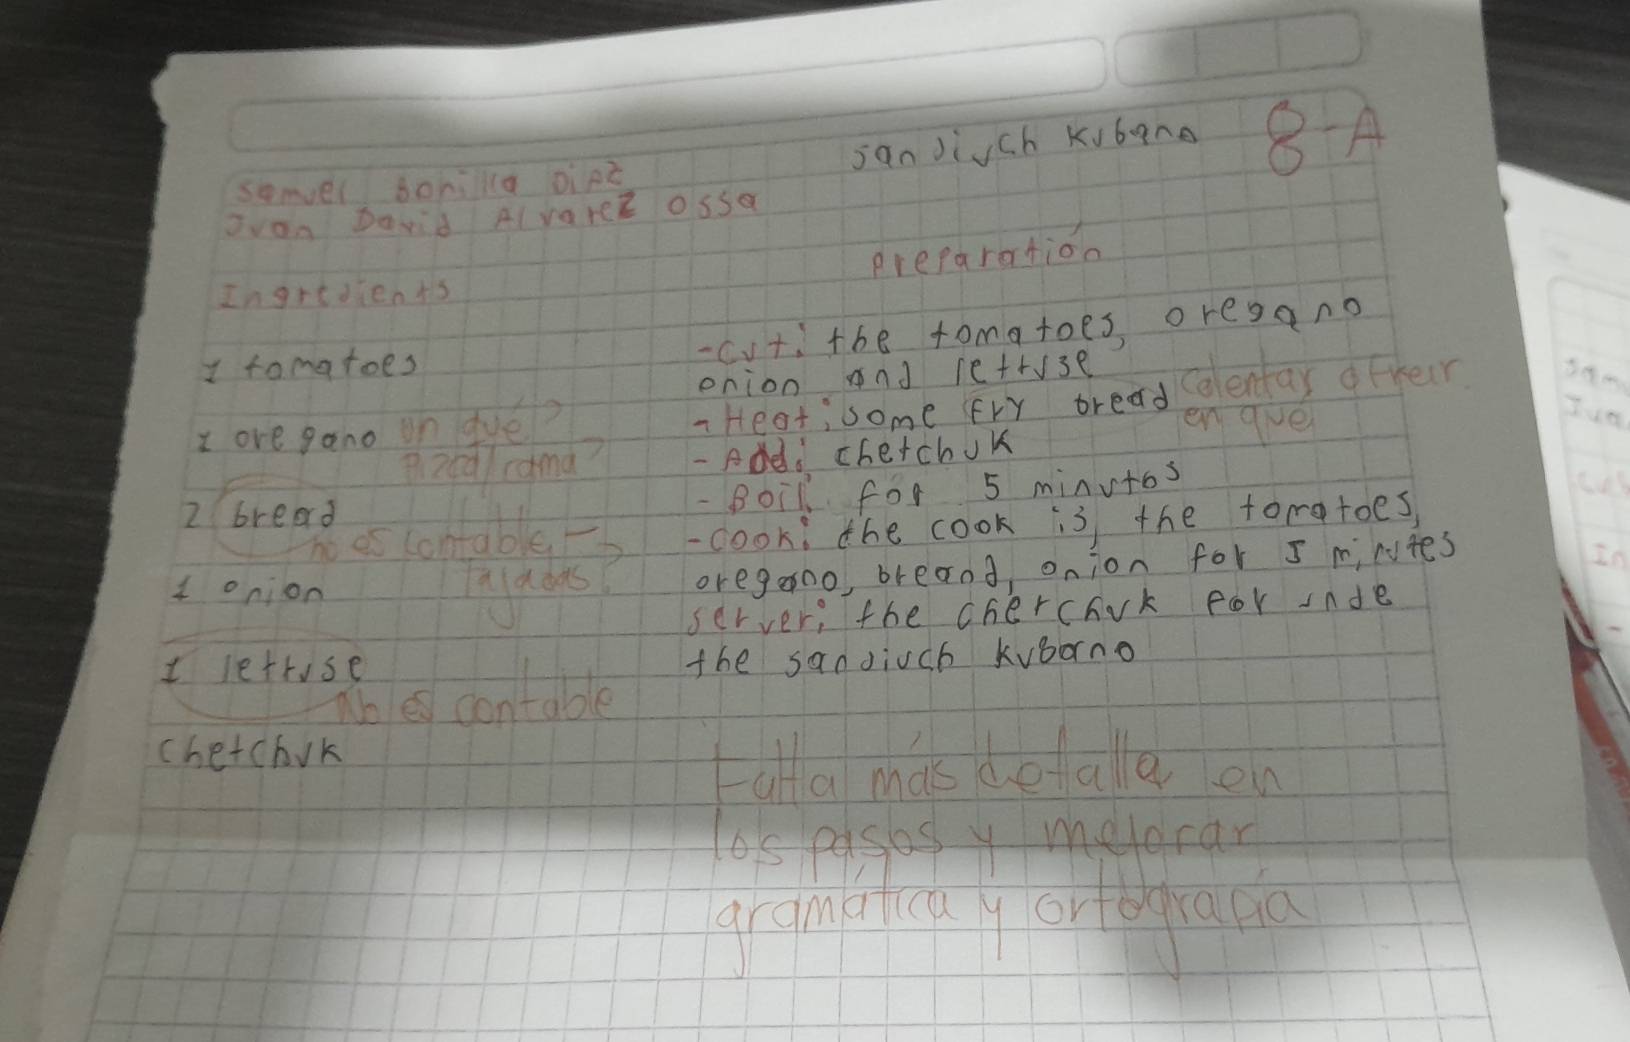 sandivch kubano 8-A
samuel bonilla Diaz
Juan David Alvarez ossa
preparatión
Ingredients
-cut: the tomatoes, oregano
1 tomatoes
onion and lettuse
-Heat: some fry bread calentar o freir
en que
1 oregano un qué?
Pizca/rama?
-Add: chetchuk
-Boil for 5 minutos
2 bread
no es contable →
tajadas
-cook: the cook is, the tomatoes,
oregano, breand, onion for 5 minutes
1 onion
server: the cherchuk por unde
the sandiuch kubano
1 lettuse
No es contable
chetchuk
Falta más detalle en
los pasos y mejorar
gramática y ortografía